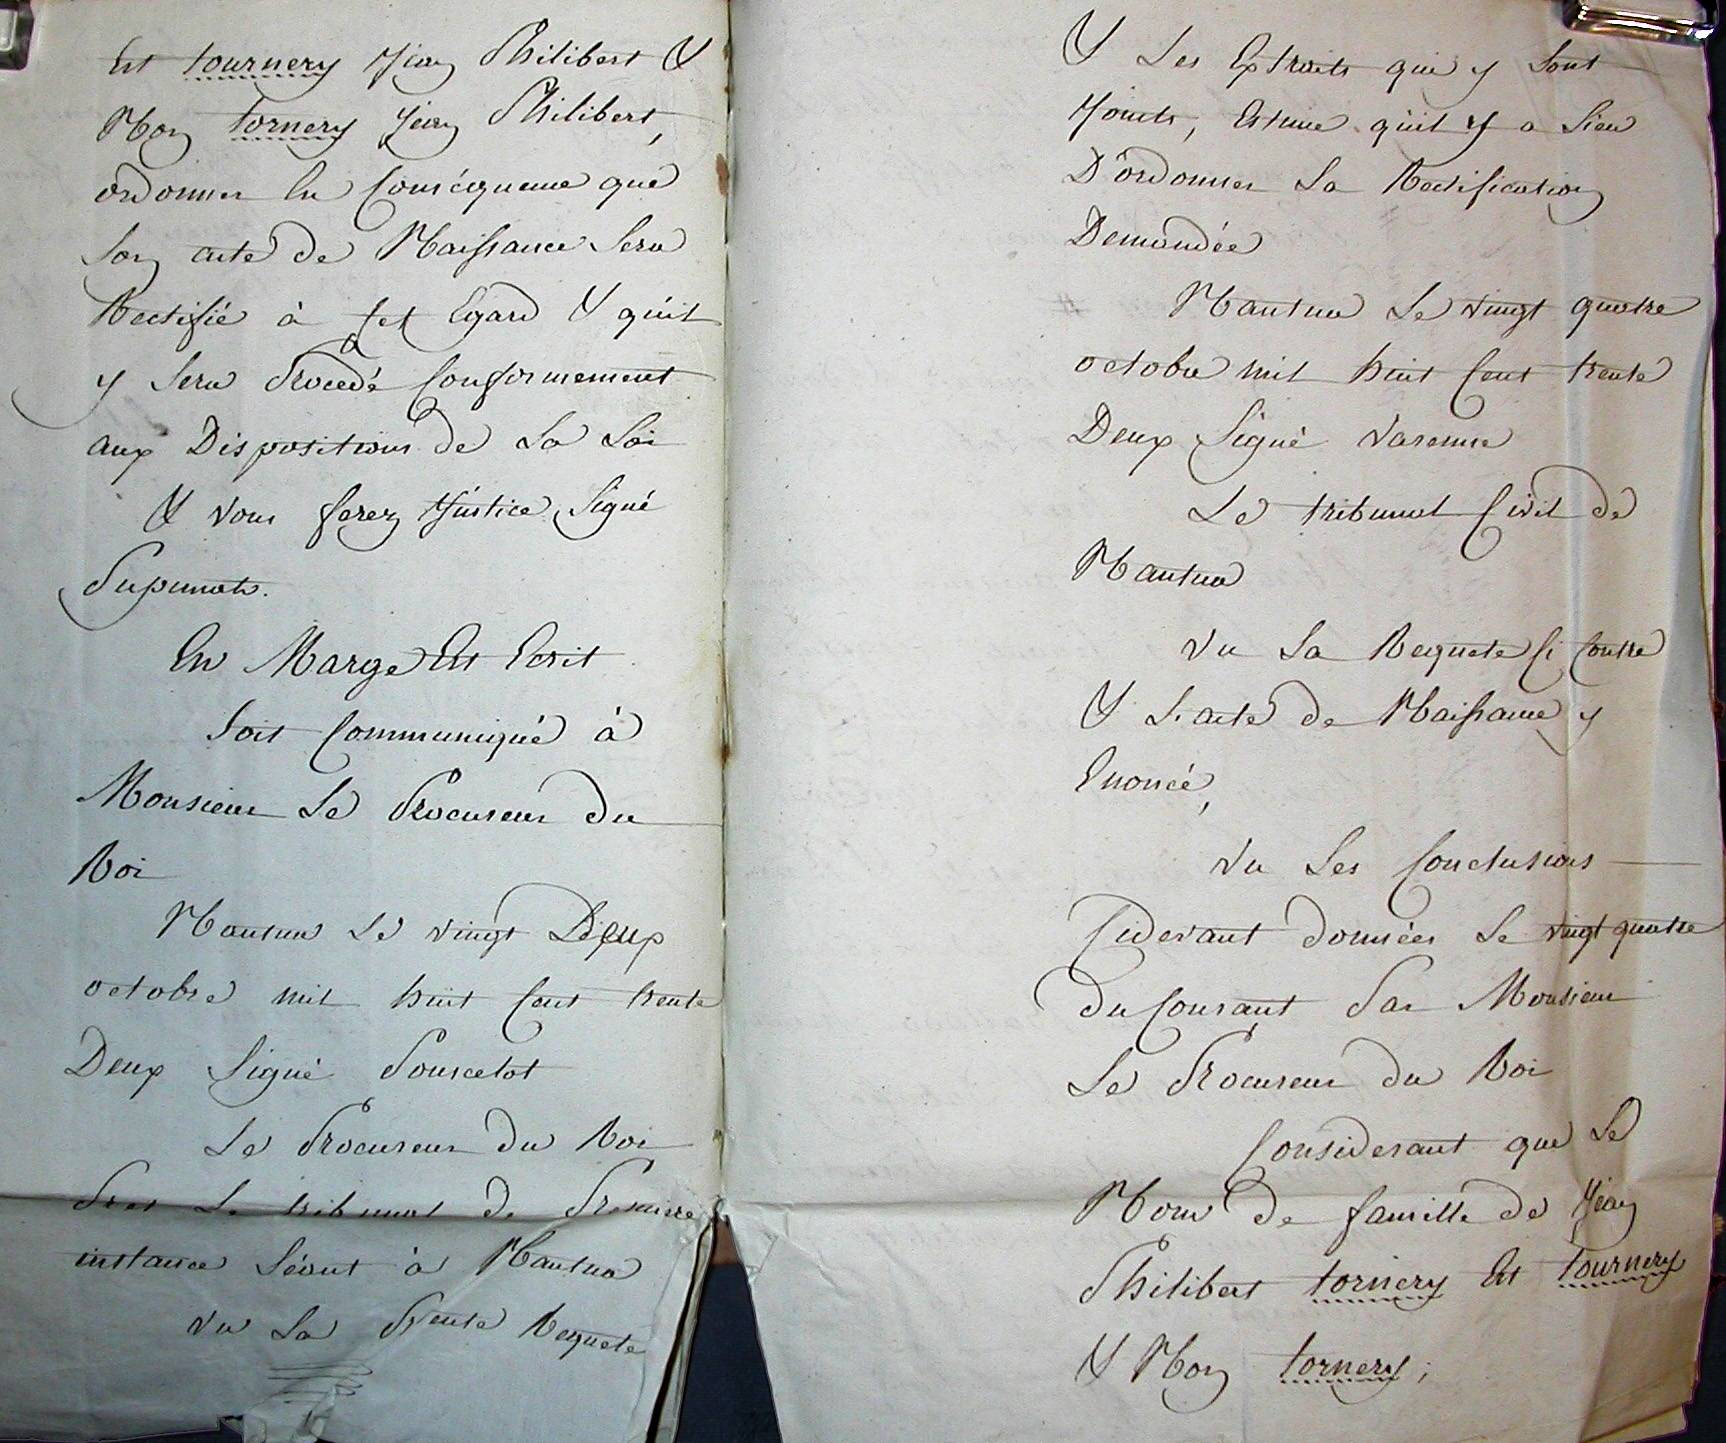 Est tournery Jean Philibert &
Non tornery Jean Philibert,
ordonner En Conséquence que
Son acte de Naissance Sera
Rectifié à Cet Egard & qu'il
y Sera Procedé Conformement
aux Dispositions de La Loi
& vous ferez Justice, Signé
En Marge Est Ecrit
Soit Communiqué à
Monsieur Le Procureur du
Roi
Nantua Le vingt Deux
octobre mil huit Cent trente
Deux Signé Poncelot
Le Procureur Du Roi
Pres Le tribunal de Premiere
instance Séant à Nantua
vu La Prente Requete
& Les Extraits qui y Sont
Joints, Estime qu'il y a Lieu
D'ordonner La Rectification
Demandée
Nantua Le vingt quatre
octobre mil huit Cent trente
Deux Signé Varenne
Le tribunal Civil de
Nantua
vu La Requete Ci Contre
& L'acte de Naissance y
Enoncé,
vu Les Conclusions
Cidevant données Le vingt quatre
du Courant Par Monsieur
Le Procureur du Roi
Considerant que Le
Nom de famille de Jean
Philibert tornery Est tournery
& Non tornery;